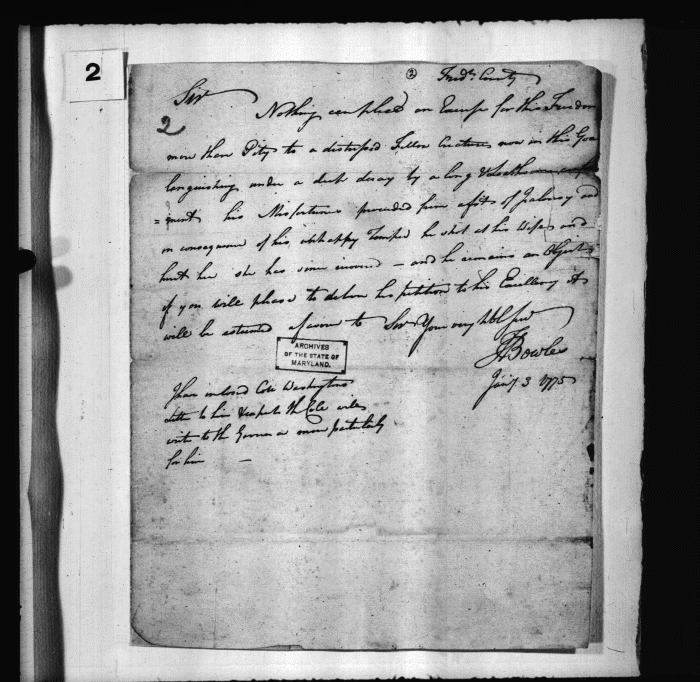 2
② Fredk. County
Sir
2
Nothing can plead an Excuse for this Freedom
more than Pity to a distressed Fellow Creature now in this Goal
languishing under a deep decay by a long &
=ment his Misfortunes proceeded from a fit of Jealousy and
in consequence of his unhappy Temper he shot at his Wife and
hurt her she has since recovered — and he remains an Object
if you will please to deliver his petition to his Excellency it
will be esteemed a favour to Sir Your very hbl Serv
Bowles
Jan'y 3 1775
ARCHIVES
OF THE STATE OF
MARYLAND.
I have inclosed Colo Washingtons
Letter to him & expect the Colo will
write to the Governor more particularly
for him —